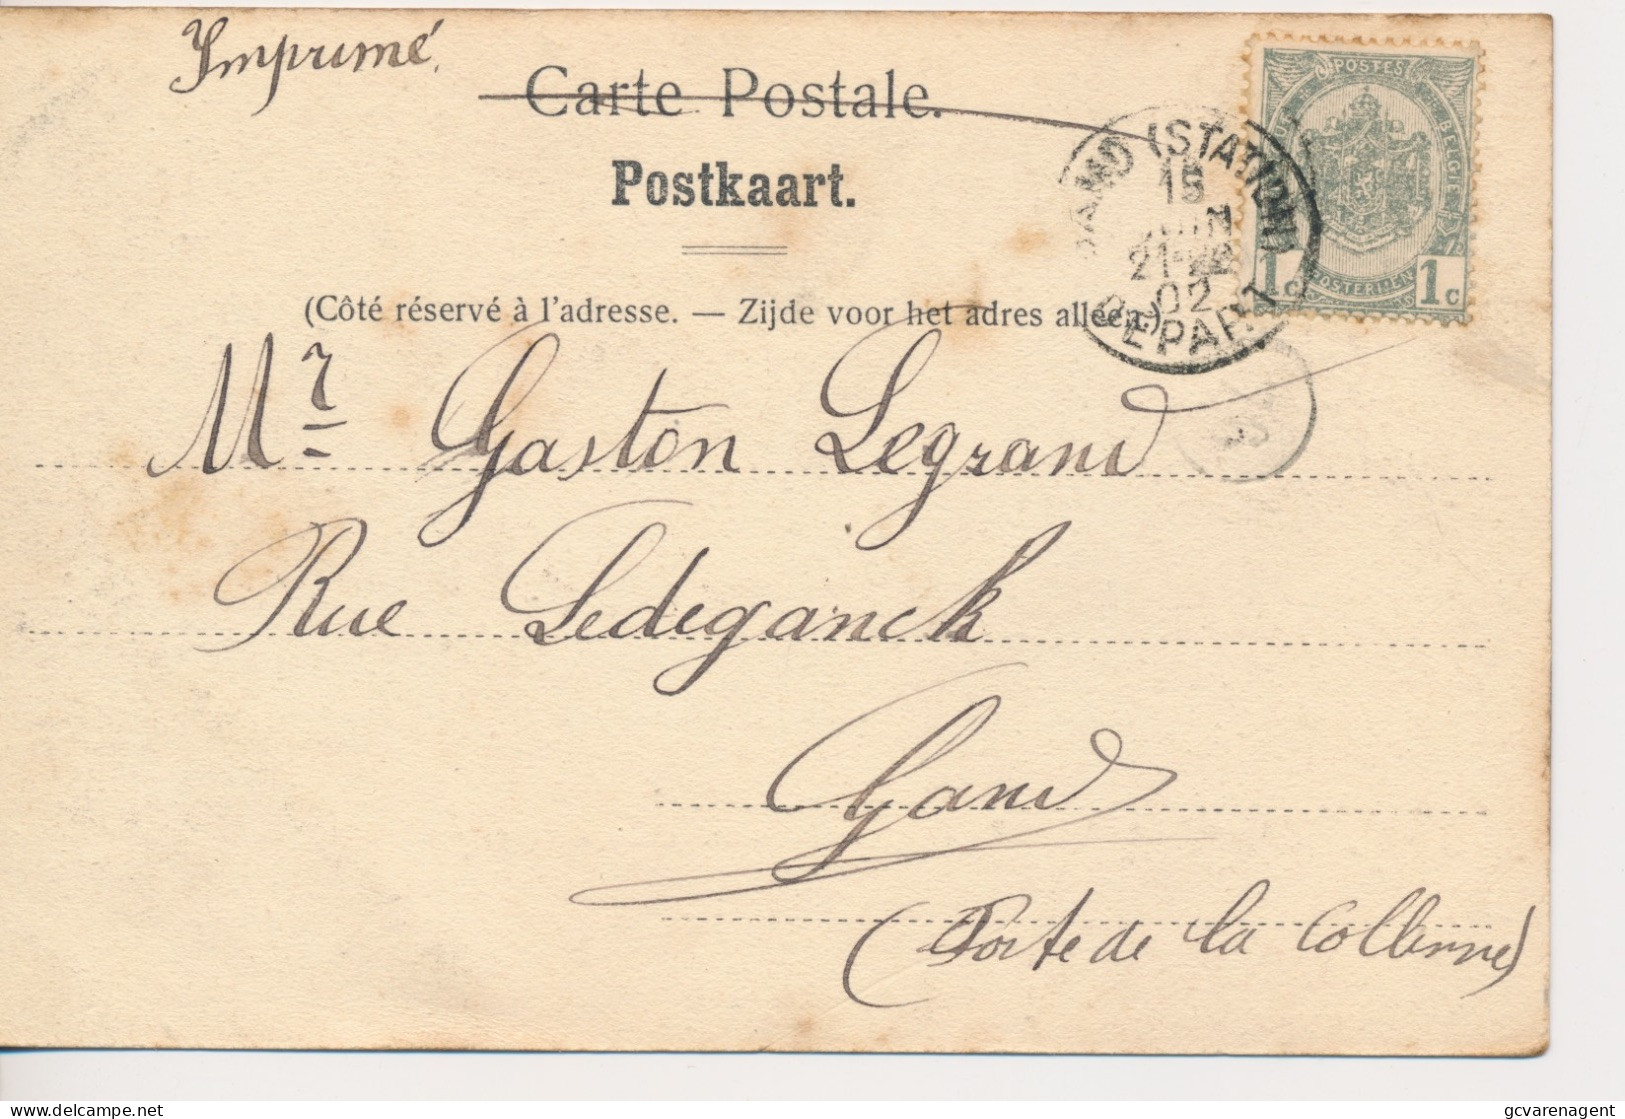 Imprimé.
Carte Postale.
Postkaart.
(Côté réservé à l'adresse. — Zijde voor het adres alleen.)
GAND (STATION)
15
JUIN
21-22
02
DEPART
POSTES
BELGIQUE
1c 1c
Mr Gaston Legrand
Rue Ledeganck
Gand
(Porte de la Colline)
gcvarenagent